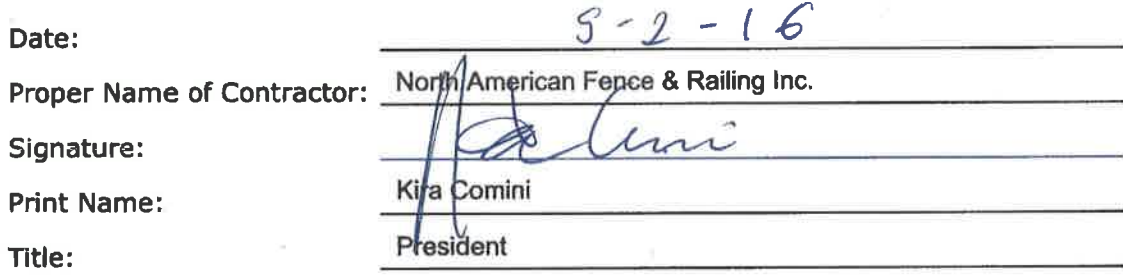 Date: 9-2-16
Proper Name of Contractor: North American Fence & Railing Inc.
Signature:
Print Name: Kira Comini
Title: President